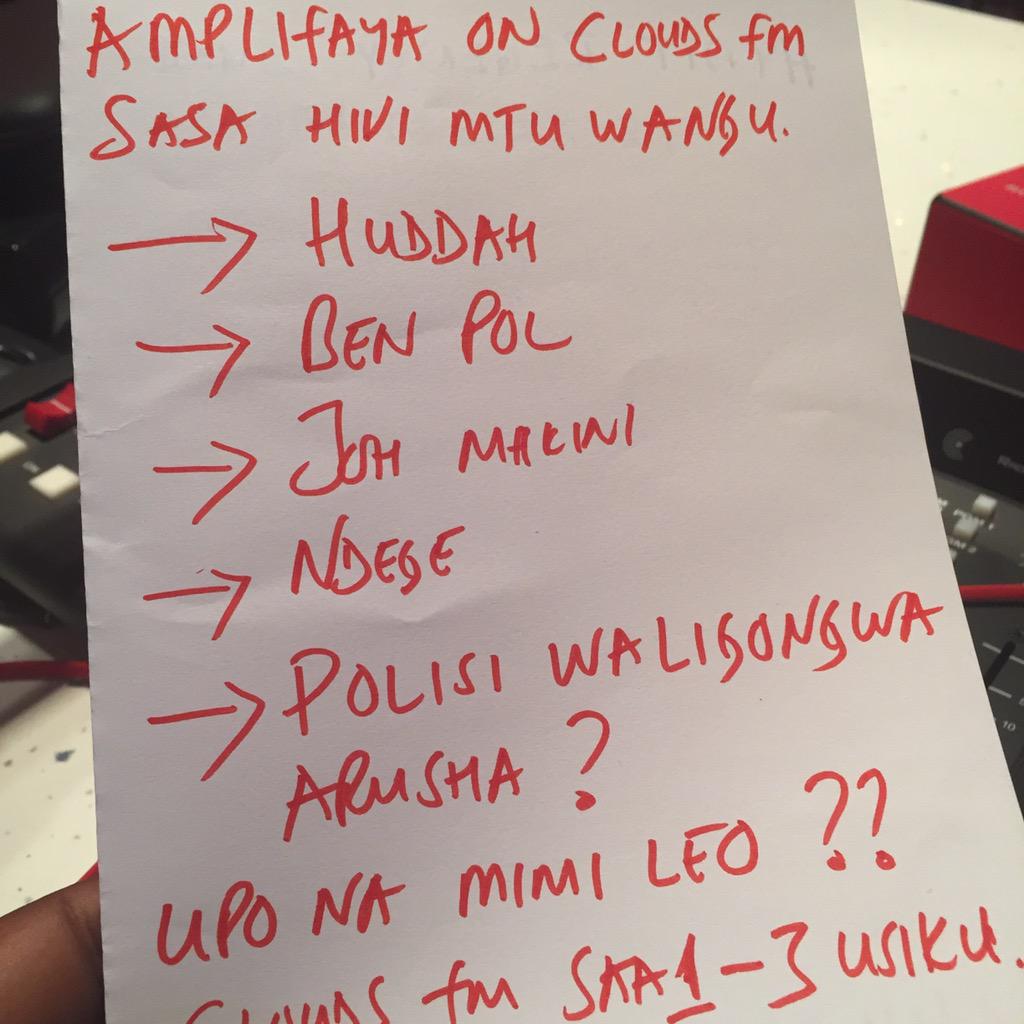 AMPLIFAYA ON CLOUDS fm
SASA HIVI MTU WANGU.
→ HUDDAH
→ BEN POL
→ JOH MAKINI
→ NDEGE
→ POLISI WALIGONGWA
ARUSHA ?
UPO NA MIMI LEO ??
CLOUDS fm SAA 1-3 USIKU.